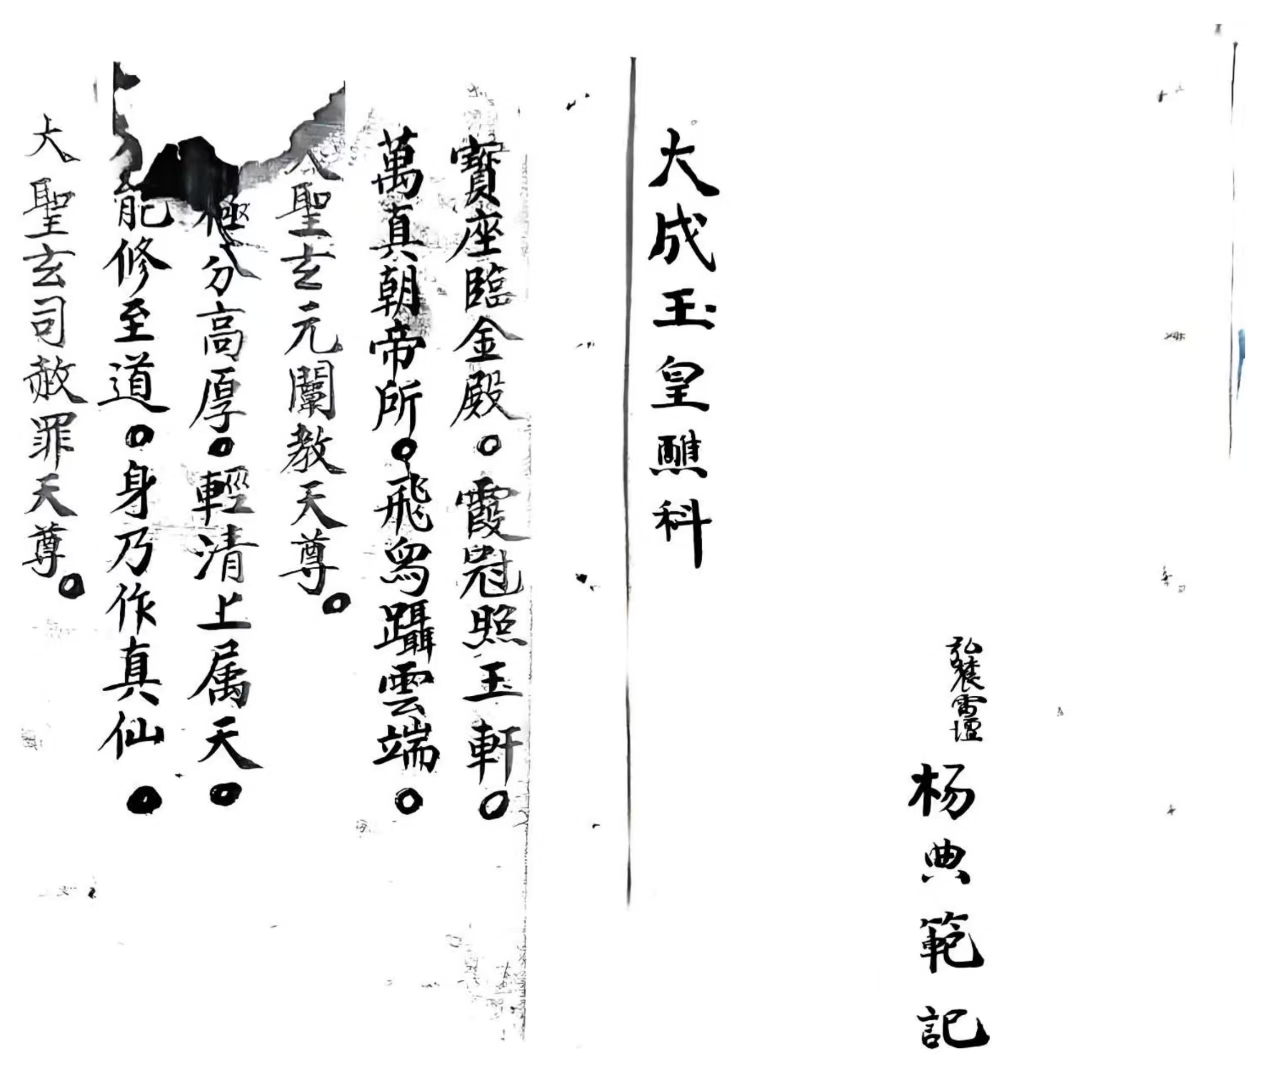 大成玉皇醮科
弘農雷壇
杨典範記
寶座臨金殿。霞冠照玉軒。
萬真朝帝所。飛舄躡雲端。
大聖玄元闡教天尊。
極分高厚。輕清上属天。
能修至道。身乃作真仙。
大聖玄司赦罪天尊。